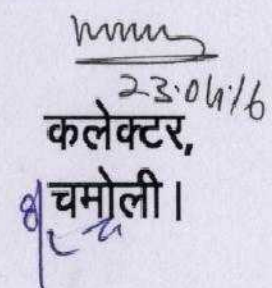 23.04.16
कलेक्टर,
चमोली।